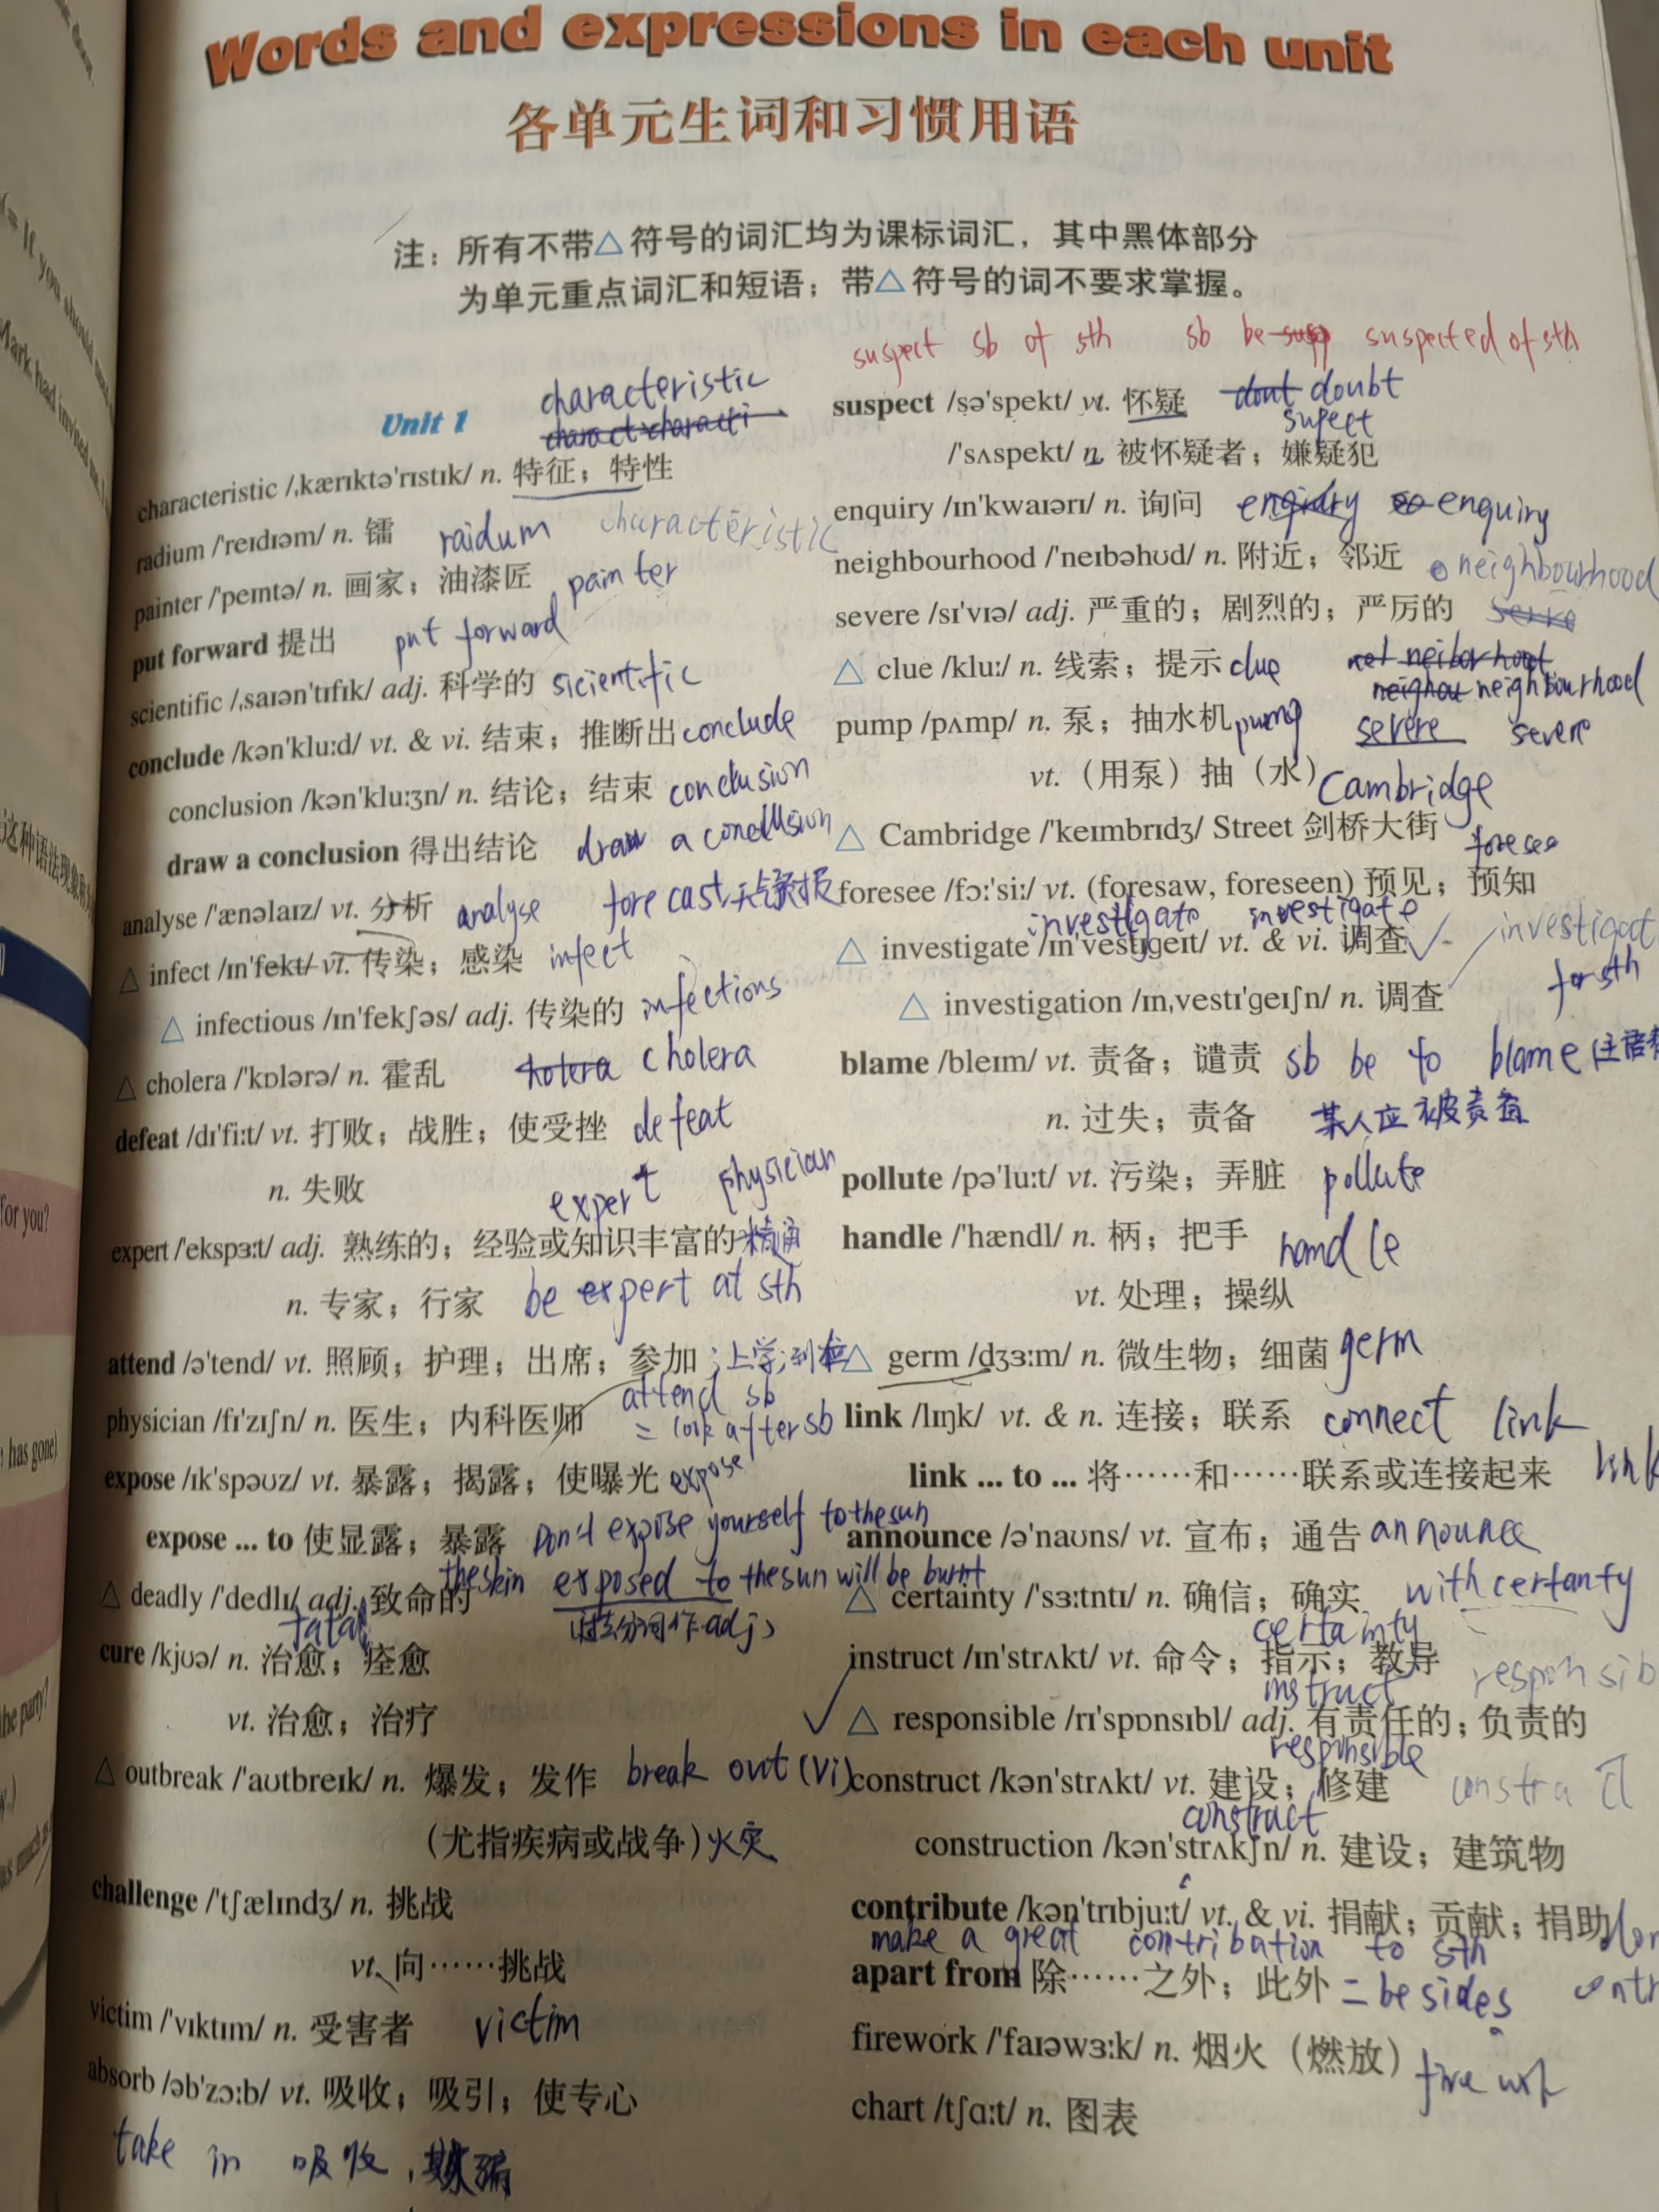 Words and expressions in each unit
各单元生词和习惯用语
注：所有不带△符号的词汇均为课标词汇，其中黑体部分
为单元重点词汇和短语；带△符号的词不要求掌握。
Unit 1
characteristic
characteristic /ˌkærɪktə'rɪstɪk/ n. 特征；特性
radium /'reɪdɪəm/ n. 镭 raidum characteristic
painter /'peɪntə/ n. 画家；油漆匠 painter
put forward 提出 put forward
scientific /ˌsaɪən'tɪfɪk/ adj. 科学的 sicientific
conclude /kən'kluːd/ vt. & vi. 结束；推断出 conclude
conclusion /kən'kluːʒn/ n. 结论；结束 conclusion
draw a conclusion 得出结论 draw a conclusion
analyse /'ænəlaɪz/ vt. 分析 analyse forecast
△ infect /ɪn'fekt/ vt. 传染；感染 infect
△ infectious /ɪn'fekʃəs/ adj. 传染的 infections
△ cholera /'kɒlərə/ n. 霍乱 cholera cholera
defeat /dɪ'fiːt/ vt. 打败；战胜；使受挫 defeat
n. 失败
expert physician
expert /'ekspɜːt/ adj. 熟练的；经验或知识丰富的 精通
n. 专家；行家 be expert at sth
attend /ə'tend/ vt. 照顾；护理；出席；参加；上学；到校
attend sb
physician /fɪ'zɪʃn/ n. 医生；内科医师 = look after sb
expose /ɪk'spəʊz/ vt. 暴露；揭露；使曝光 expose
expose ... to 使显露；暴露 Don't expose yourself to the sun
the skin exposed to the sun will be burnt
△ deadly /'dedlɪ/ adj. 致命的
fatal (过去分词作adj)
cure /kjʊə/ n. 治愈；痊愈
vt. 治愈；治疗
△ outbreak /'aʊtbreɪk/ n. 爆发；发作 break out (vi)
（尤指疾病或战争）火灾
challenge /'tʃælɪndʒ/ n. 挑战
vt. 向……挑战
victim /'vɪktɪm/ n. 受害者 victim
absorb /əb'zɔːb/ vt. 吸收；吸引；使专心
take in 吸收，欺骗
suspect sb of sth sb be suspected of sth
suspect /sə'spekt/ vt. 怀疑 dout doubt
supect
/'sʌspekt/ n. 被怀疑者；嫌疑犯
enquiry /ɪn'kwaɪərɪ/ n. 询问 enquiry
neighbourhood /'neɪbəhʊd/ n. 附近；邻近 neighbourhood
severe /sɪ'vɪə/ adj. 严重的；剧烈的；严厉的
△ clue /kluː/ n. 线索；提示 clue
neighbourhood
pump /pʌmp/ n. 泵；抽水机 pump severe severe
vt.（用泵）抽（水） Cambridge
△ Cambridge /'keɪmbrɪdʒ/ Street 剑桥大街 foresee
foresee /fɔː'siː/ vt. (foresaw, foreseen) 预见；预知
investigate investigate
△ investigate /ɪn'vestɪgeɪt/ vt. & vi. 调查 investigat
for sth
△ investigation /ɪnˌvestɪ'geɪʃn/ n. 调查
blame /bleɪm/ vt. 责备；谴责 sb be to blame
n. 过失；责备 某人应被责备
pollute /pə'luːt/ vt. 污染；弄脏 pollute
handle /'hændl/ n. 柄；把手 handle
vt. 处理；操纵
△ germ /dʒɜːm/ n. 微生物；细菌 germ
link /lɪŋk/ vt. & n. 连接；联系 connect link
link ... to ... 将……和……联系或连接起来 link
announce /ə'naʊns/ vt. 宣布；通告 announce
△ certainty /'sɜːtntɪ/ n. 确信；确实 with certanty
certainty
instruct /ɪn'strʌkt/ vt. 命令；指示；教导
instruct responsib
△ responsible /rɪ'spɒnsɪbl/ adj. 有责任的；负责的
responsible
construct /kən'strʌkt/ vt. 建设；修建
construct
construction /kən'strʌkʃn/ n. 建设；建筑物
contribute /kən'trɪbjuːt/ vt. & vi. 捐献；贡献；捐助
make a great contribution to sth
apart from 除……之外；此外 = besides
firework /'faɪəwɜːk/ n. 烟火（燃放）
chart /tʃɑːt/ n. 图表